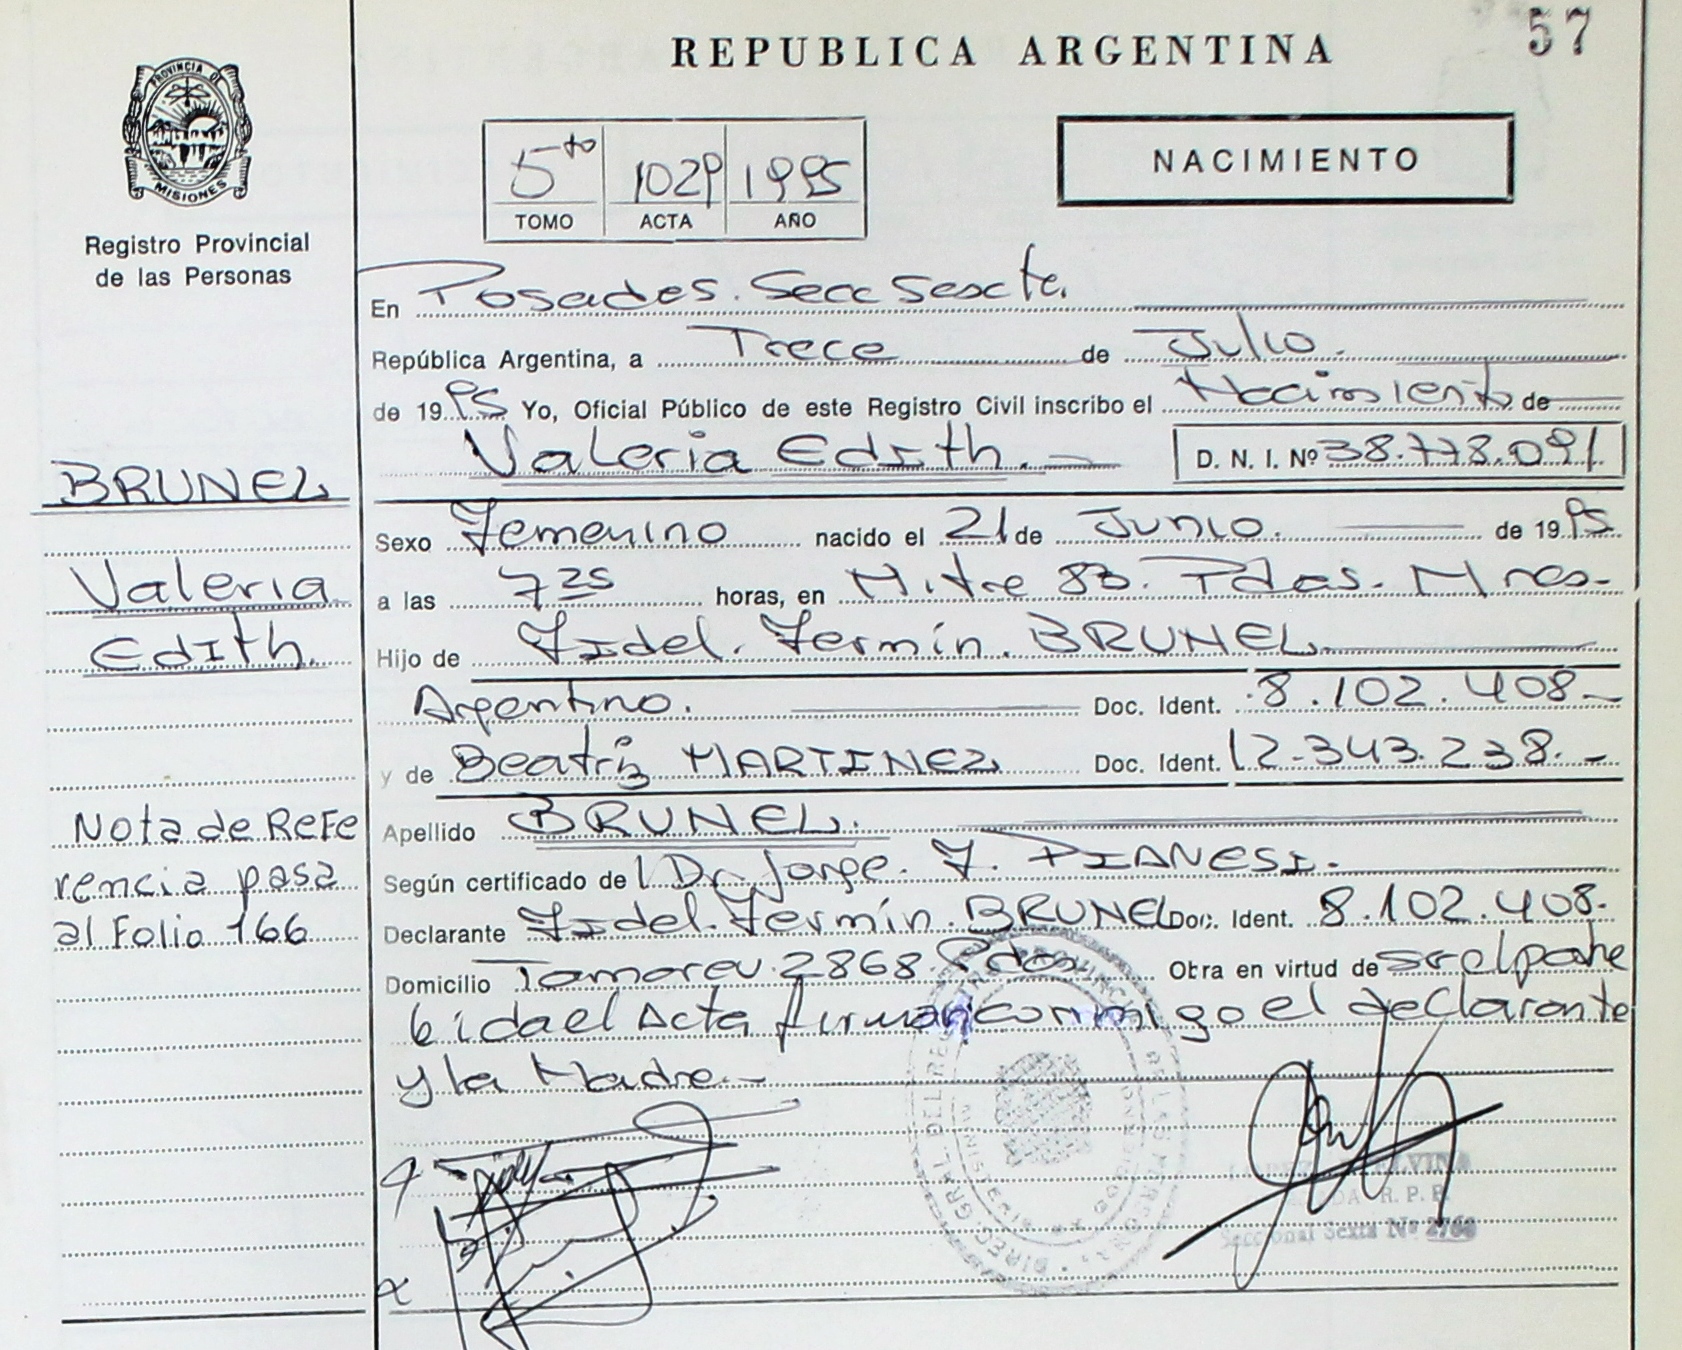 57
REPUBLICA ARGENTINA
PROVINCIA DE
MISIONES
Registro Provincial
de las Personas
5to 1029 1995
TOMO ACTA AÑO
NACIMIENTO
En Posadas. Secc Sexcta.
República Argentina, a Trece de Julio.
de 1995 Yo, Oficial Público de este Registro Civil inscribo el Nacimiento de
Valeria Edith. D. N. I. Nº 38.778.091
BRUNEL
Valeria
Edith.
Sexo Femenino nacido el 21 de Junio. de 1995
a las 7 25 horas, en Mitre 83. Pdas. Mnes.
Hijo de Fidel. Fermín. BRUNEL
Argentino. Doc. Ident. 8.102.408
y de Beatriz MARTINEZ Doc. Ident. 12.343.238.
Apellido BRUNEL.
Según certificado del Dr. Jorge. F. PIANESI.
Declarante Fidel. Fermín. BRUNEL Doc. Ident. 8.102.408.
Domicilio Tamareu 2868. Pdas. Obra en virtud de ser el padre
Leida el Acta firman conmigo el declarante
y la Madre
Nota de Refe
rencia pasa
al Folio 166
Seccional Sexta Nº 2768